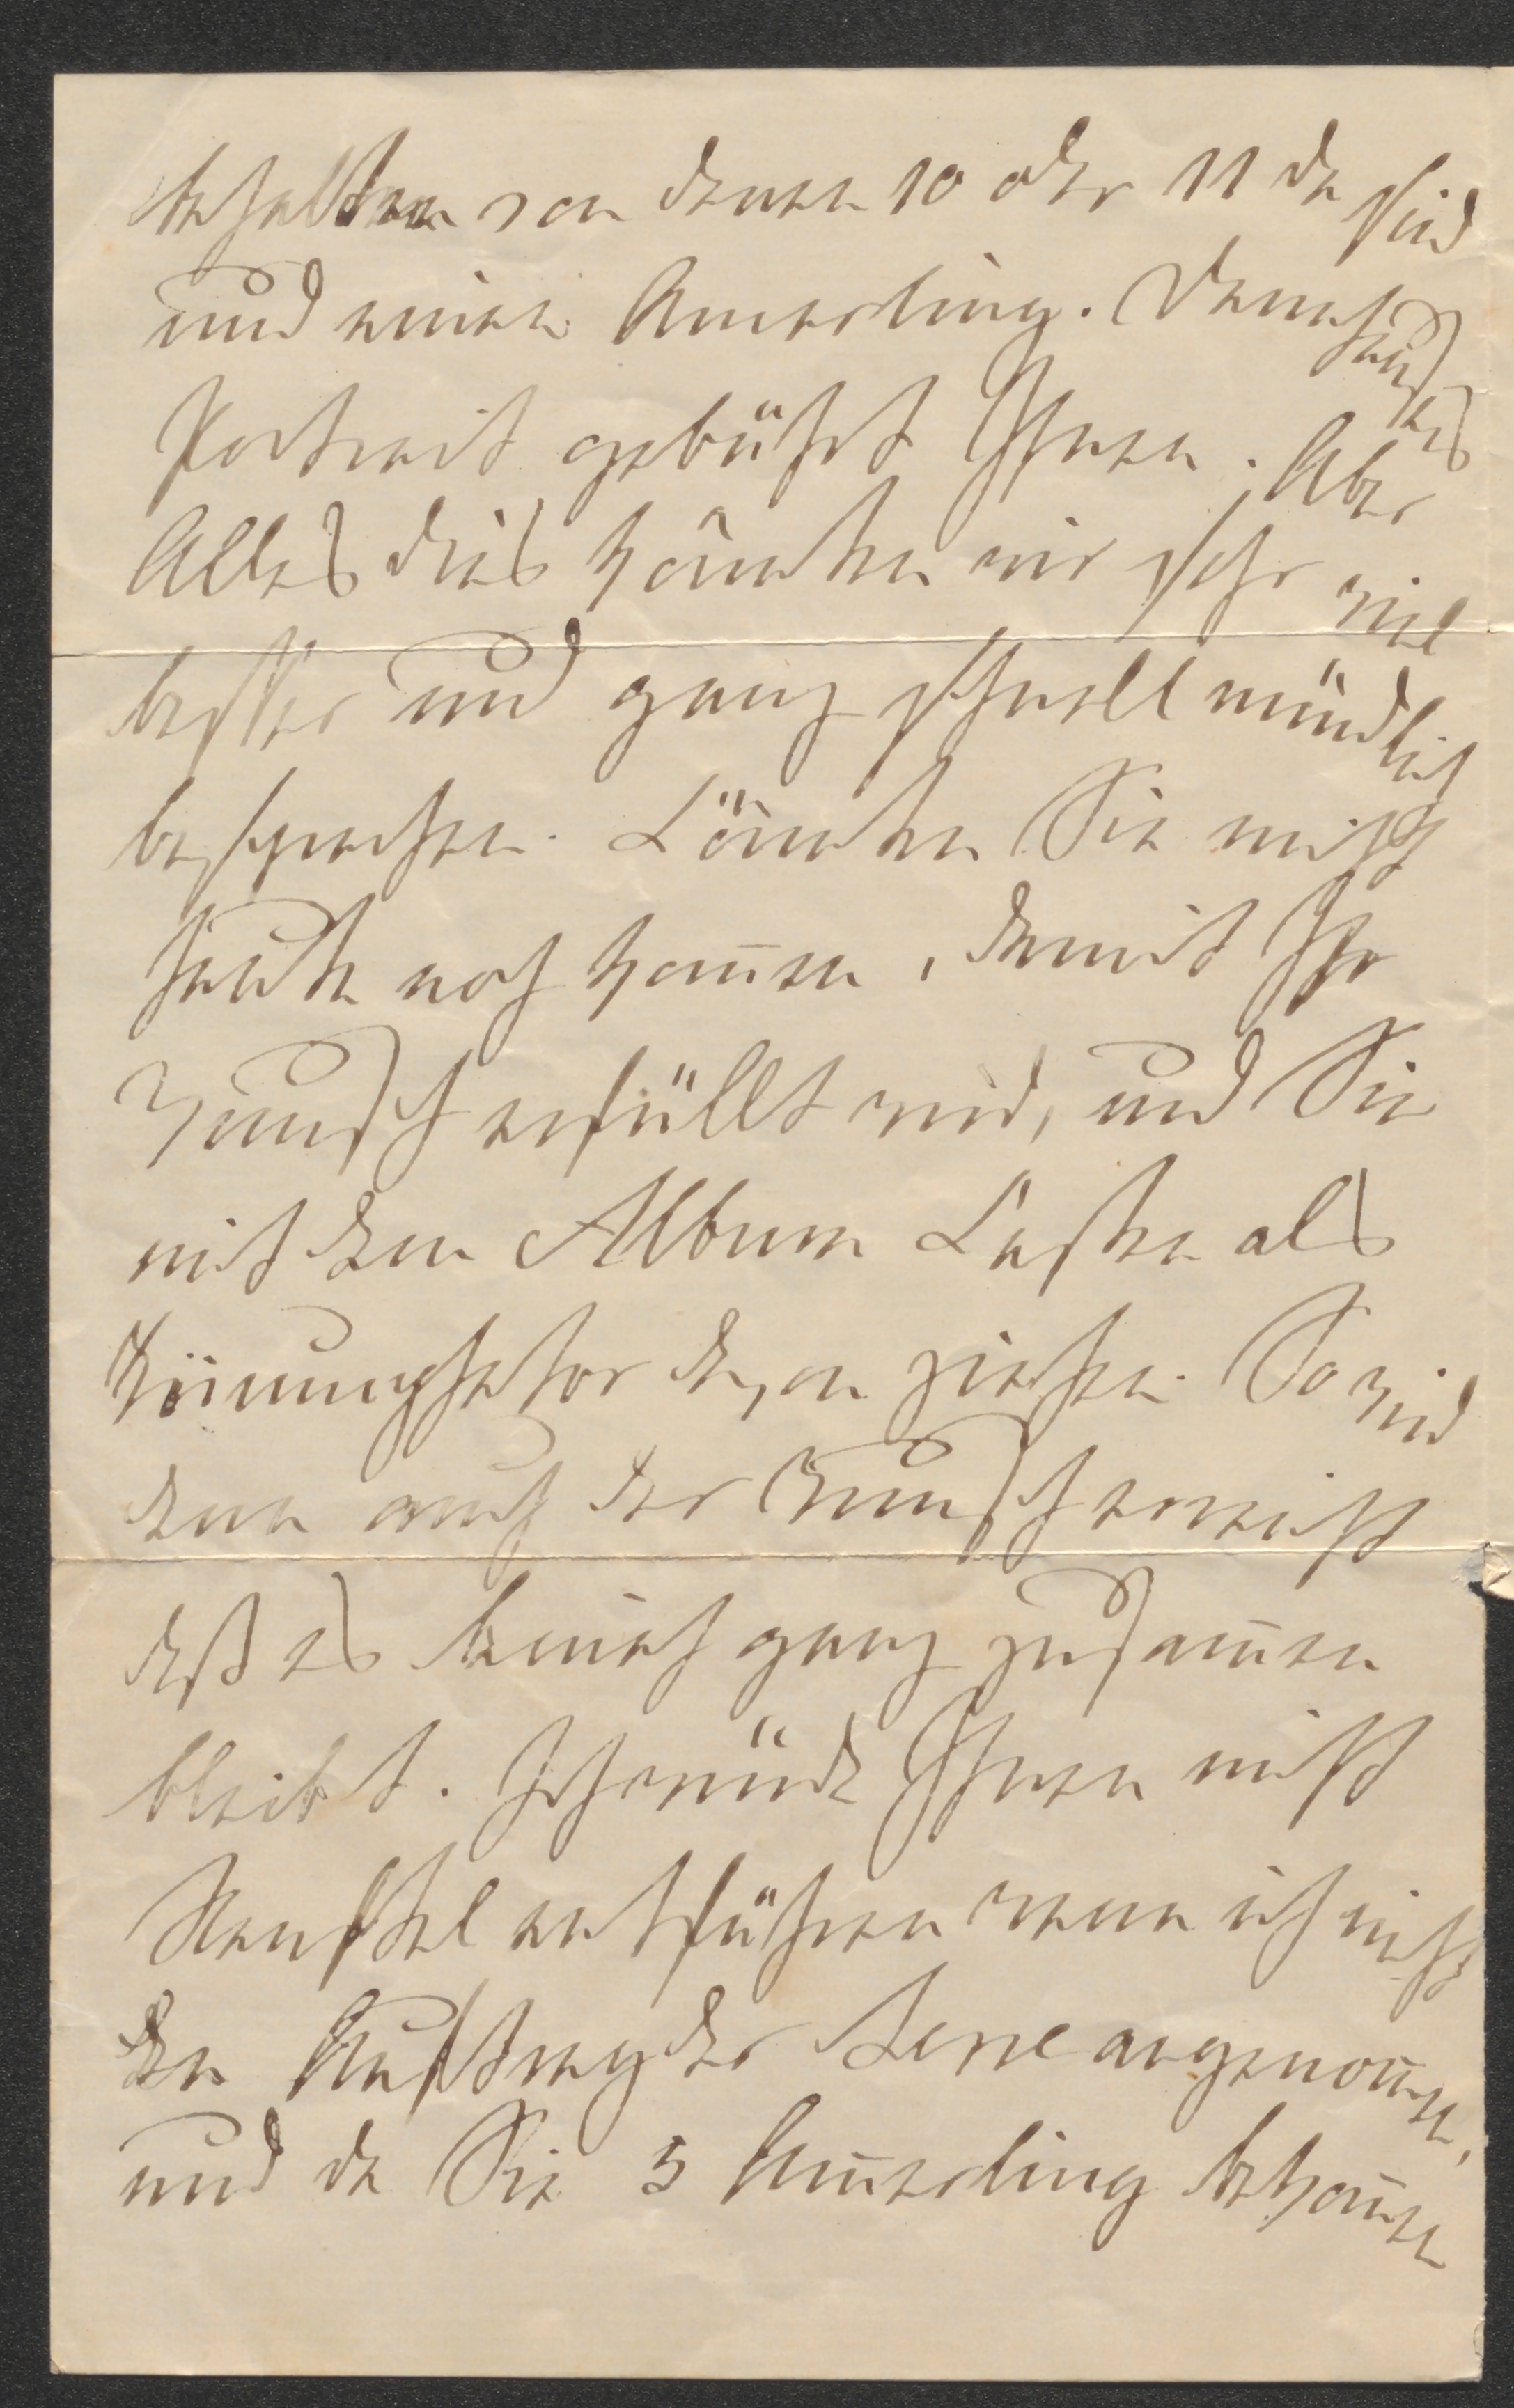 behalten von denen 10 oder 11 da sind
und einen Amerling. Danhauser's
Portrait gebührt Ihnen. Aber
Alles dies könnten wir sehr viel
besser und ganz schnell mündlich
besprechen. Könnten Sie nicht
heute noch kom̅en, damit Ihr
Wunsch erfüllt wird, und Sie
mit dem Album Kasten als
davon ziehen. So wird
dann auch der Wunsch erreicht
daß es beinah ganz zusam̅en
bleibt. Ich würde Ihnen nicht
entführen wenn ich nicht
den Auftrag der angenom̅en,
und da Sie 5 Am̅erling bekom̅en